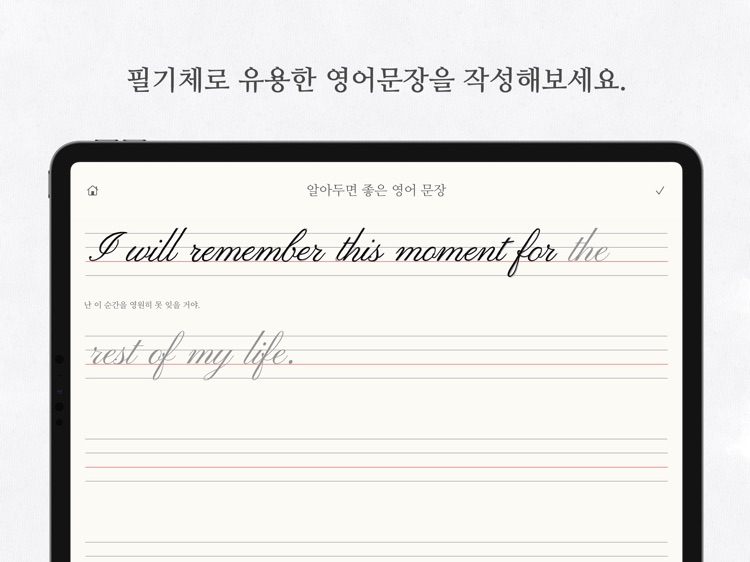 필기체로 유용한 영어문장을 작성해보세요.
알아두면 좋은 영어 문장
I will remember this moment for the
난 이 순간을 영원히 못 잊을 거야.
rest of my life.